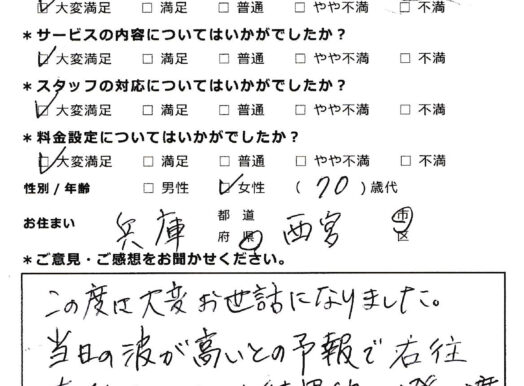 大変満足 □ 満足 □ 普通 □ やや不満 □ 不満
＊サービスの内容についてはいかがでしたか？
☑ 大変満足 □ 満足 □ 普通 □ やや不満 □ 不満
＊スタッフの対応についてはいかがでしたか？
☑ 大変満足 □ 満足 □ 普通 □ やや不満 □ 不満
＊料金設定についてはいかがでしたか？
☑ 大変満足 □ 満足 □ 普通 □ やや不満 □ 不満
性別 / 年齢 □ 男性 ☑ 女性 ( 70 ) 歳代
お住まい 兵庫 都 道 府 県 西宮 市 区
＊ご意見・ご感想をお聞かせください。
この度は大変お世話になりました。
当日の波が高いとの予報で右往